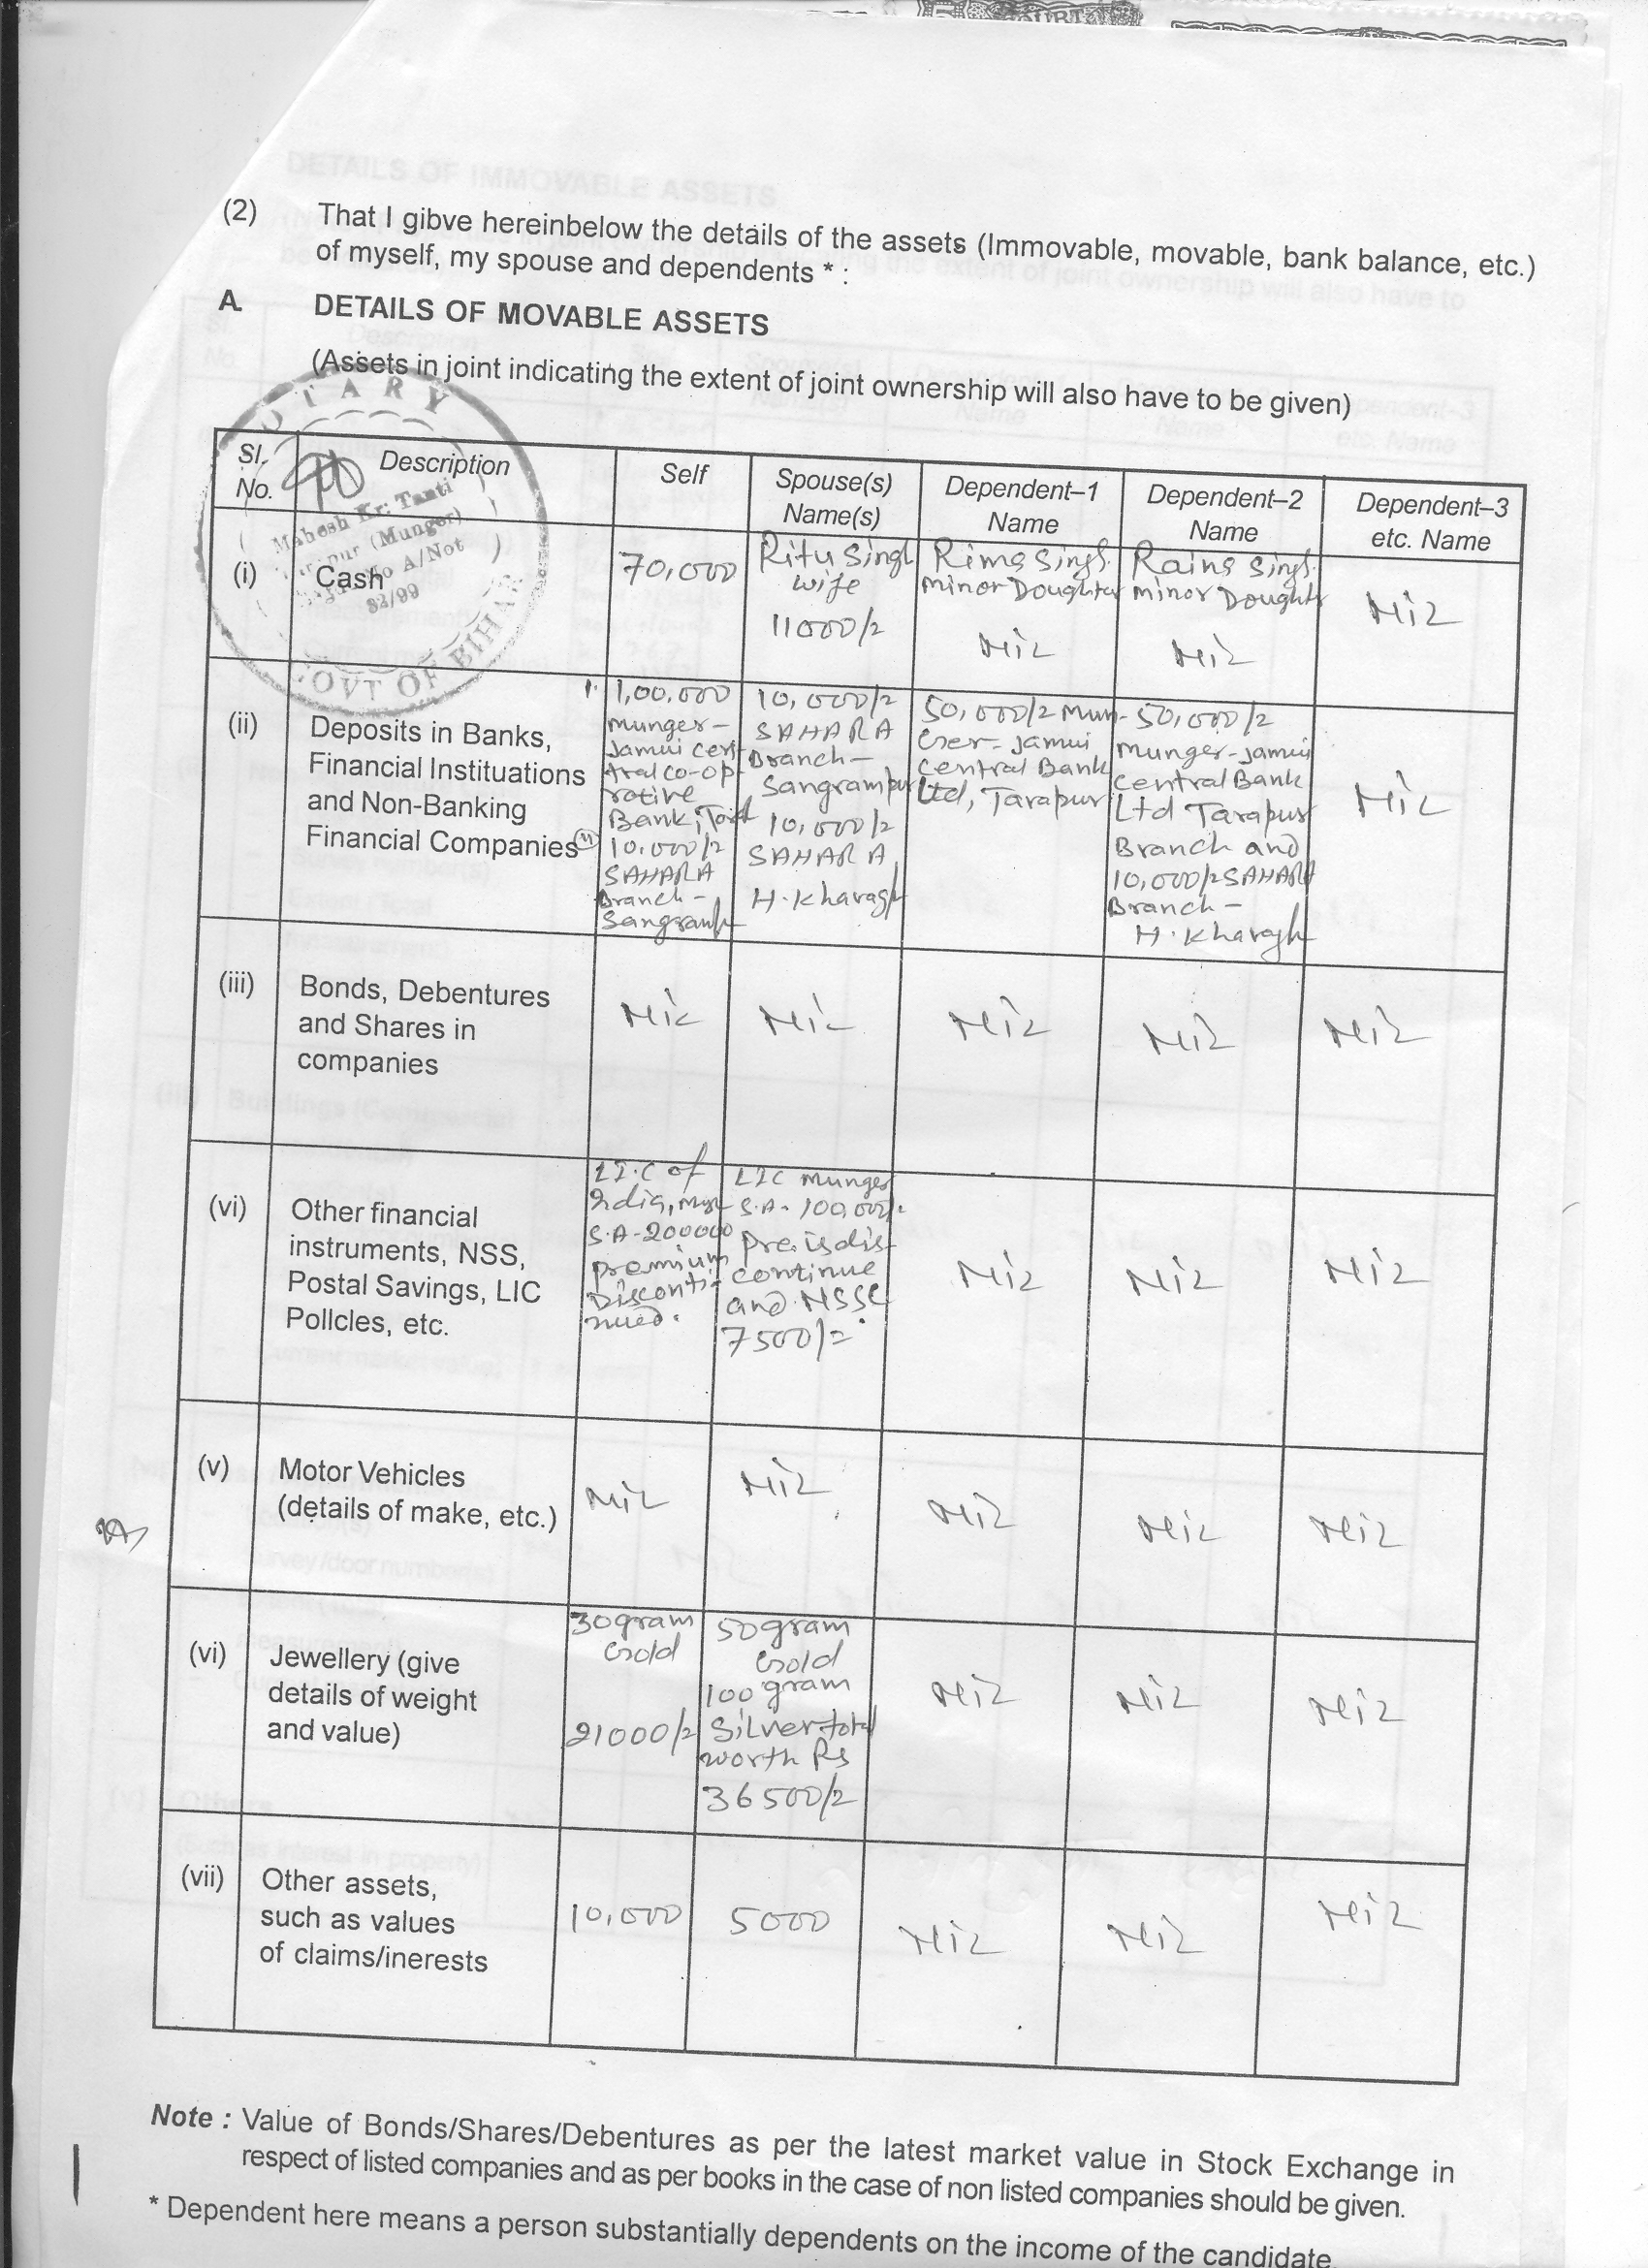 COURT
(2) That I gibve hereinbelow the details of the assets (Immovable, movable, bank balance, etc.)
of myself, my spouse and dependents * :
A. DETAILS OF MOVABLE ASSETS
(Assets in joint indicating the extent of joint ownership will also have to be given)
NOTARY
Mahesh Kr. Tanti
(Munger)
A/Not
82/99
GOVT OF BIHAR
Sl. No.
Description
Self
Spouse(s)
Name(s)
Dependent–1
Name
Dependent–2
Name
Dependent–3
etc. Name
(i)
Cash
70,000
Ritu Singh
wife
11000/=
Rima Singh
minor Doughter
Nil
Raina Singh
minor Doughter
Nil
Nil
(ii)
Deposits in Banks,
Financial Instituations
and Non-Banking
Financial Companies
1. 1,00,000
Munger–
Jamui Cen
tral co-op
rative
Bank,
10,000/=
SAHARA
Branch–
10,000/=
SAHARA
Branch–
Sangrampur
10,000/=
SAHARA
H. Kharagpur
50,000/= Mun-
Ger-Jamui
Central Bank
Ltd, Tarapur
50,000/=
Munger-Jamui
Central Bank
Ltd Tarapur
Branch and
10,000/= SAHARA
Branch–
H. Kharagpur
Nil
(iii)
Bonds, Debentures
and Shares in
companies
Nil
Nil
Nil
Nil
Nil
(vi)
Other financial
instruments, NSS,
Postal Savings, LIC
Pollcles, etc.
LI.C of
India,
S.A-200000
premium
Disconti-
nued.
LIC Munger
S.A. 100,000/.
Pre. is dis-
continue
and NSSC
7500/=
Nil
Nil
Nil
(v)
Motor Vehicles
(details of make, etc.)
Nil
Nil
Nil
Nil
Nil
(vi)
Jewellery (give
details of weight
and value)
30gram
Gold
21000/=
50gram
Gold
100 gram
Silver total
worth Rs
36500/=
Nil
Nil
Nil
(vii)
Other assets,
such as values
of claims/inerests
10,000
5000
Nil
Nil
Nil
Note : Value of Bonds/Shares/Debentures as per the latest market value in Stock Exchange in
respect of listed companies and as per books in the case of non listed companies should be given.
* Dependent here means a person substantially dependents on the income of the candidate.